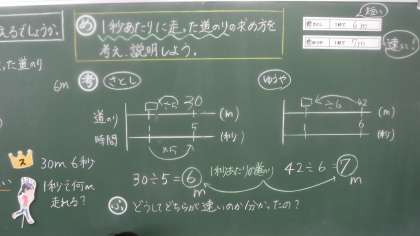 えるでしょうか。
た道のり
め 1秒あたりに走った道のりの求め方を
考え、説明しよう。
6m
7m
速い!
6m
考 さとし
ゆうや
÷5 30
÷6 42
道のり (m)
(m)
時間 5 (秒)
6 (秒)
×5
30m 6秒
1秒で何m
走れる?
30÷5=6 m
1秒あたりの道のり
42÷6=7 m
ふ どうしてどちらが速いのか分かったの?